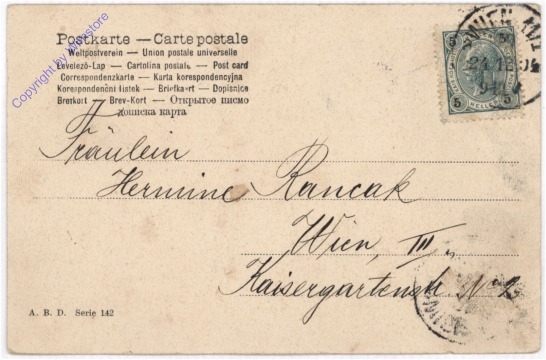 Postkarte — Carte postale
Weltpostverein — Union postale universelle
Levelező-Lap — Cartolina postale — Post card
Correspondenzkarte — Karta korespondencyjna
Korespondenční lístek — Briefkaart — Dopisnice
Brefkort — Brev-Kort — Открытое письмо
дописна карта
Copyright by
5 5
5 HELLER 5
Fräulein
Hermine Rancak
Wien, III
Kaisergartenstr. No 2
A. B. D. Serie 142